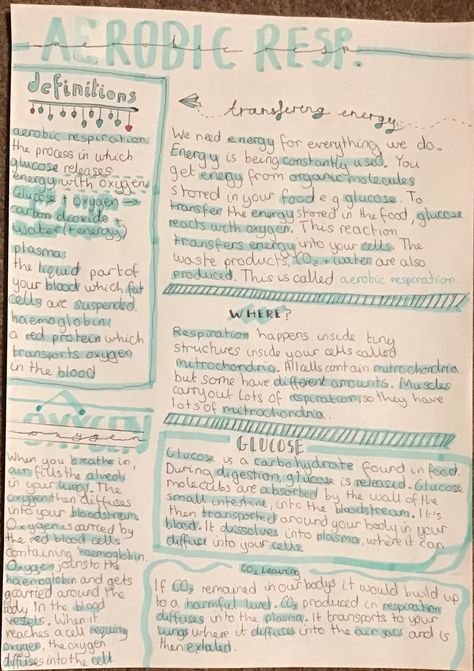 AEROBIC RESP.
aerobic resp.
definitions
aerobic respiration:
the process in which
glucose releases
energy with oxygen
Glucose + oxygen →
carbon dioxide +
water (+energy)
plasma:
the liquid part of
your blood which fat
cells are suspended.
haemoglobin:
a red protein which
transports oxygen
in the blood
OXYGEN
oxygen
When you breathe in,
air fills the alveoli
in your lungs. The
oxygen then diffuses
into your bloodstream.
Oxygen is carried by
the red blood cells
containing haemoglobin.
Oxygen joins to the
haemoglobin and gets
carried around the
body in the blood
vessels. When it
reaches a cell requiring
oxygen, the oxygen
diffuses into the cell.
transfering energy
We need energy for everything we do.
Energy is being constantly used. You
get energy from organic molecules
stored in your food e.g glucose. To
transfer the energy stored in the food, glucose
reacts with oxygen. This reaction
transfers energy into your cells. The
waste products, CO2 + water are also
produced. This is called aerobic respiration.
WHERE?
Respiration happens inside tiny
structures inside your cells called
mitrochondria. All cells contain mitrochondria
but some have different amounts. Muscles
carry out lots of respiration so they have
lots of mitrochondria.
GLUCOSE
Glucose is a carbohydrate found in food.
During digestion, glucose is released. Glucose
molecules are absorbed by the wall of the
small intestine, into the bloodstream. It's
then transported around your body in your
blood. It dissolves into plasma, where it can
diffuse into your cells.
CO2 Leaving
If CO2 remained in our bodys it would build up
to a harmful level. CO2 produced in respiration
diffuses into the plasma. It transports to your
lungs where it diffuses into the air sacs and is
then exhaled.